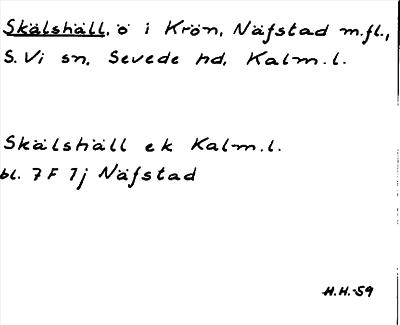 Skälshäll, ö i Krön, Näfstad m.fl.,
S. Vi sn, Sevede hd, Kalm.l.
Skälshäll ek Kalm.l.
bl. 7F 1j Näfstad
H.H.-59